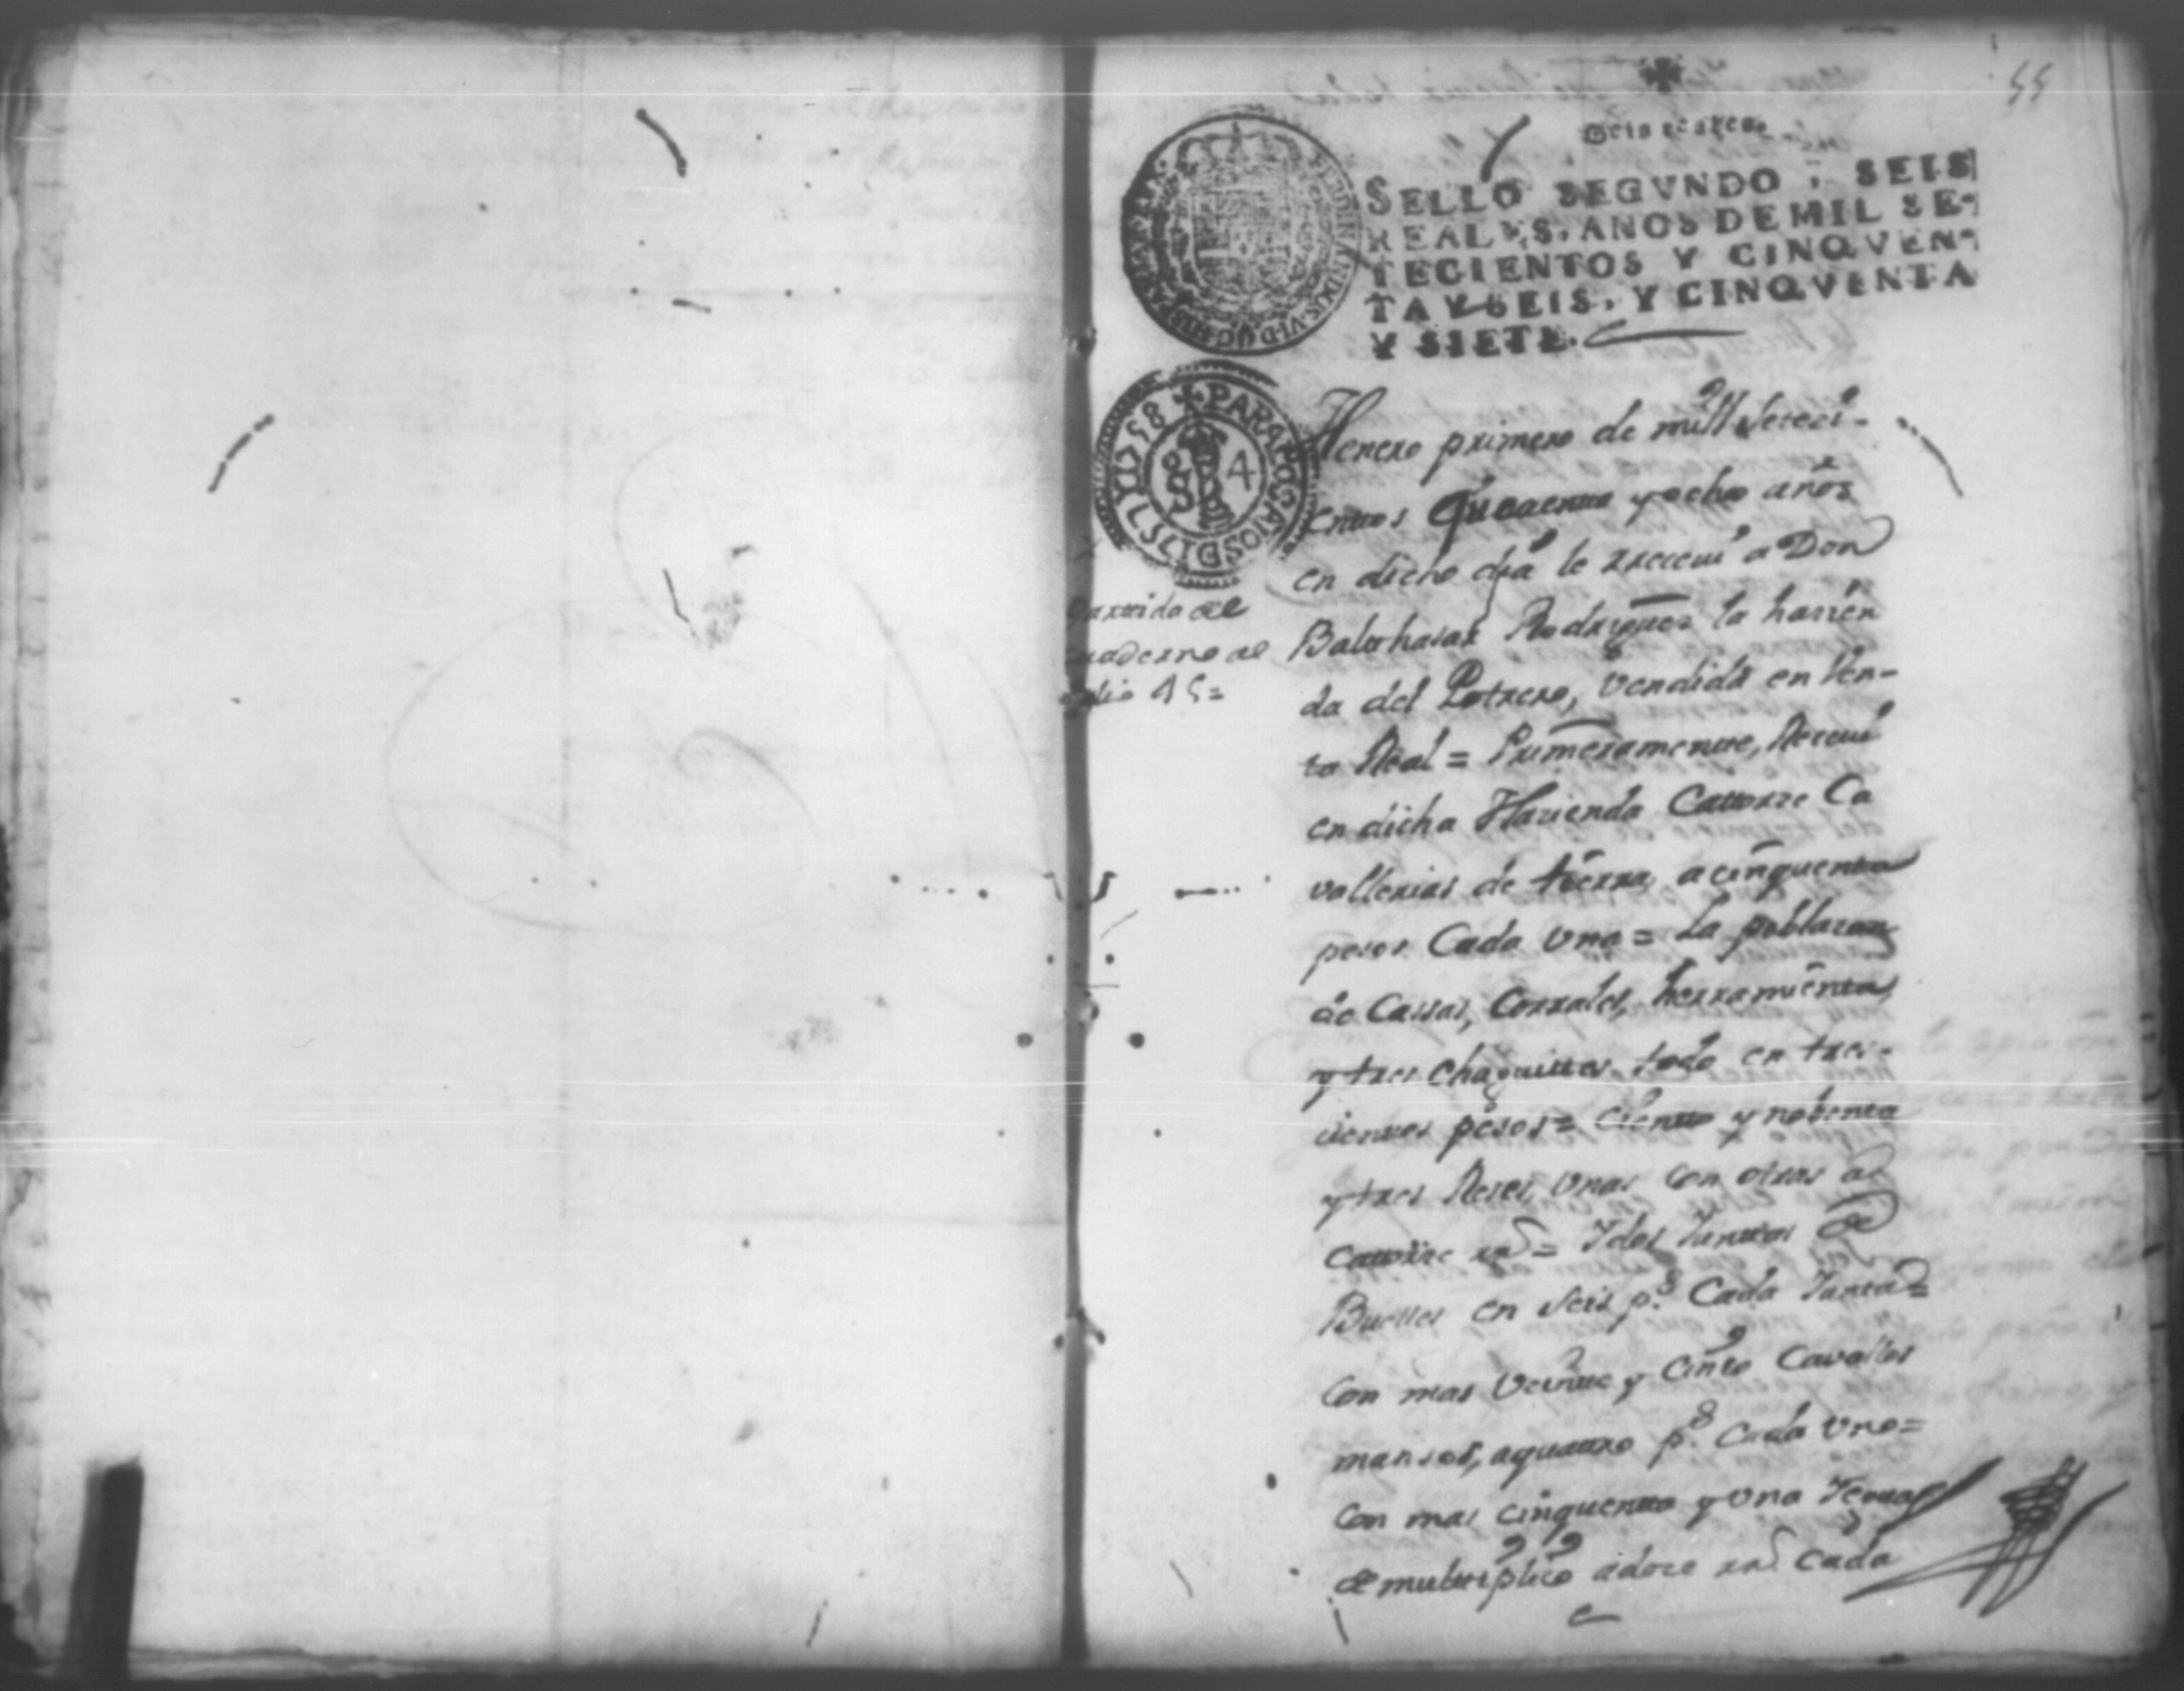 55
Seis reales
SELLO SEGVNDO, SEIS
REALES, AÑOS DE MIL SE-
TECIENTOS Y CINQVEN-
TA Y SEIS, Y CINQVENTA
Y SIETE.
PARA LOS AÑOS DE 1757 Y 1758
Henero primero de mill Seteci-
entos y ocho años
en dicho dia le rreceui a Don
Balthasar Rodriguez la hazien
da del Potrero, Vendida en Ven-
ta Real = Primeramente, Receui
en dicha Hazienda Cattorze Ca
vallerias de tierra, a cinquenta
pesos Cada Una = La poblazon
de Cassas, Corrales, herramienta
y tres chaquittes todo en tres-
cientos pesos = Ciento y nobenta
y tres Reses, Unas Con otras a
Cattorze rrs = Y dos Yuntas de
Buelles en Seis ps Cada Yunta =
Con mas Veinte y Cinco Cavallos
mansos, a quattro ps Cada Uno =
Con mas Cinquenta y Una Yeguas
de multtiplico a doze rrs Cada
quaderno de
folio 45 =